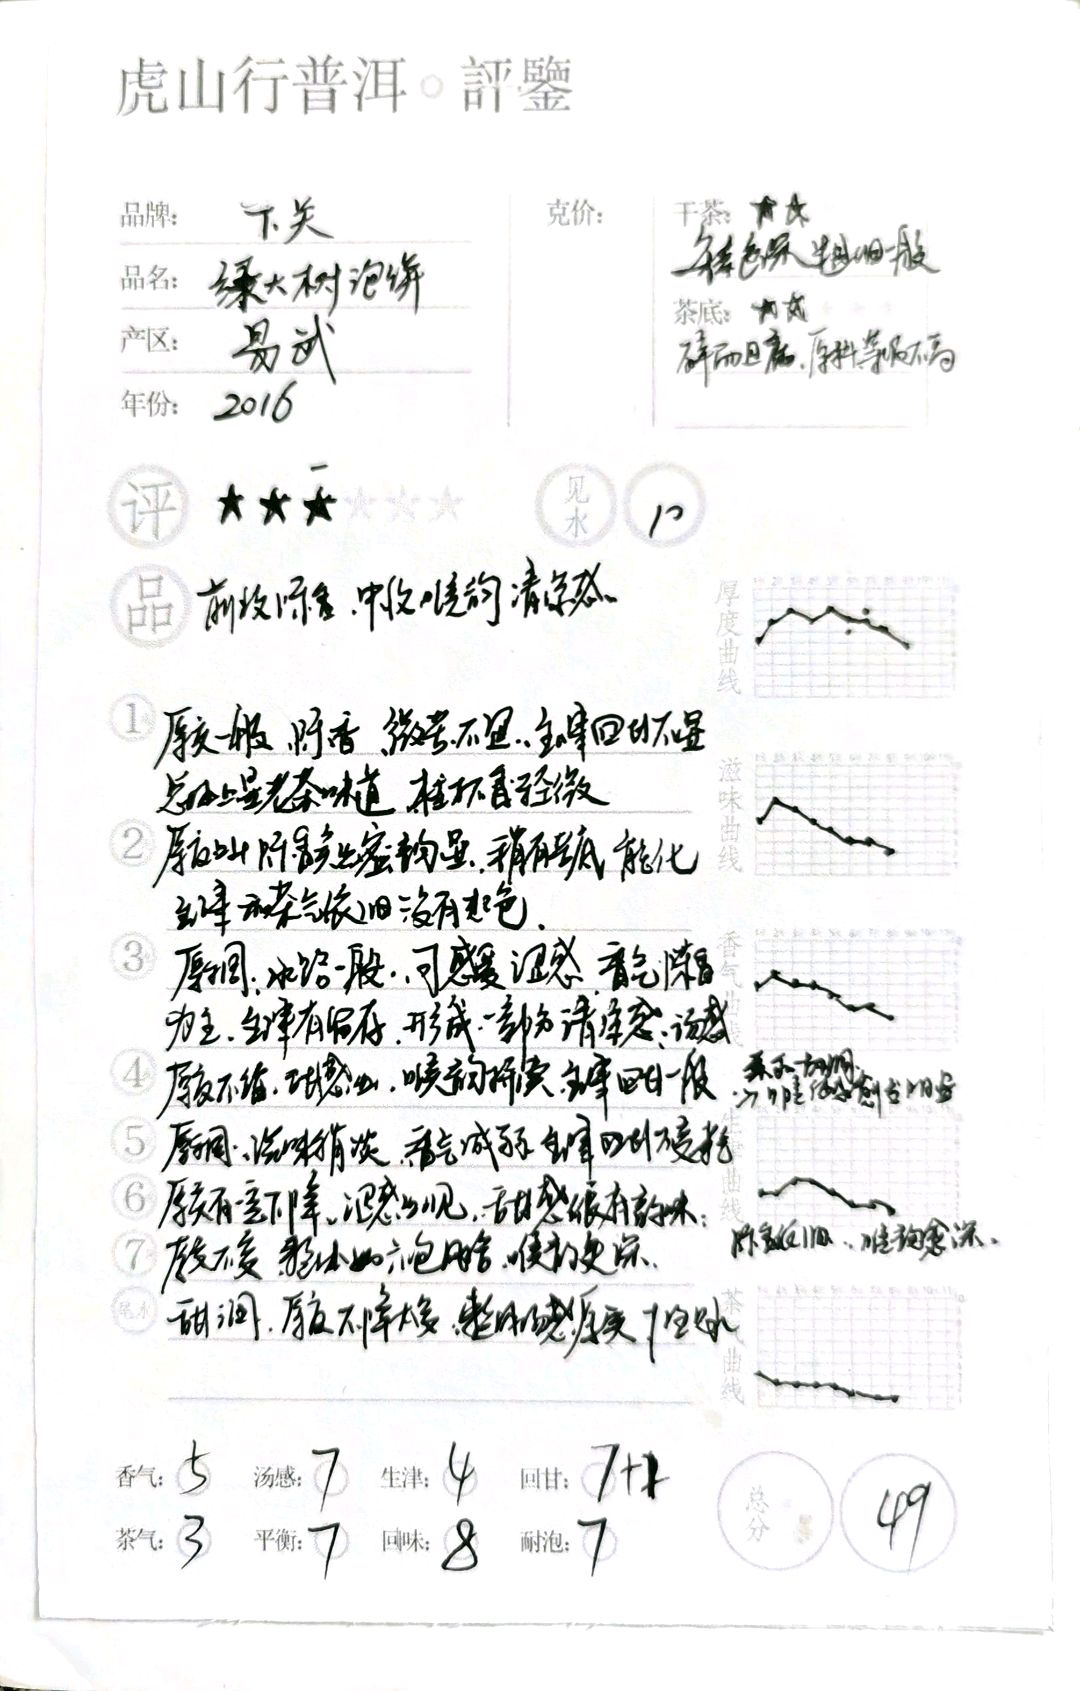 虎山行普洱。評鑒
品牌: 下关
克价:
干茶: ★★
条索色深
一般
品名: 绿大树泡饼
茶底: ★★
碎而且 原料等级不高
产区: 易武
年份: 2016
评 ★★★
见水 10
品 前段陈香、中段喉韵清凉感。
厚度曲线
① 厚度一般 陈香 微苦不显、生津回甘不显
总体上是老茶味道 挂杯香轻微
滋味曲线
② 厚度 陈香 蜜韵显、稍有苦底 能化
生津和茶气依旧没有起色、
③ 厚润、水路一般、可感爱 香气陈香
为主、生津有留存、形成一部分清凉感、汤感
香气曲线
④ 厚度不错、甜感出、喉韵 生津回甘一般
⑤ 厚润、滋味稍淡、香气减弱 生津回甘
⑥ 厚度有一 下降、 甜感很有韵味;
曲线
⑦ 厚度不变 整体如六泡 喉韵更深、
陈香依旧、喉韵 深、
尾水 甜润、厚度不降太多、整体汤感厚实
茶 曲线
香气: 5 汤感: 7 生津: 4 回甘: 7+1
总分 49
茶气: 3 平衡: 7 回味: 8 耐泡: 7